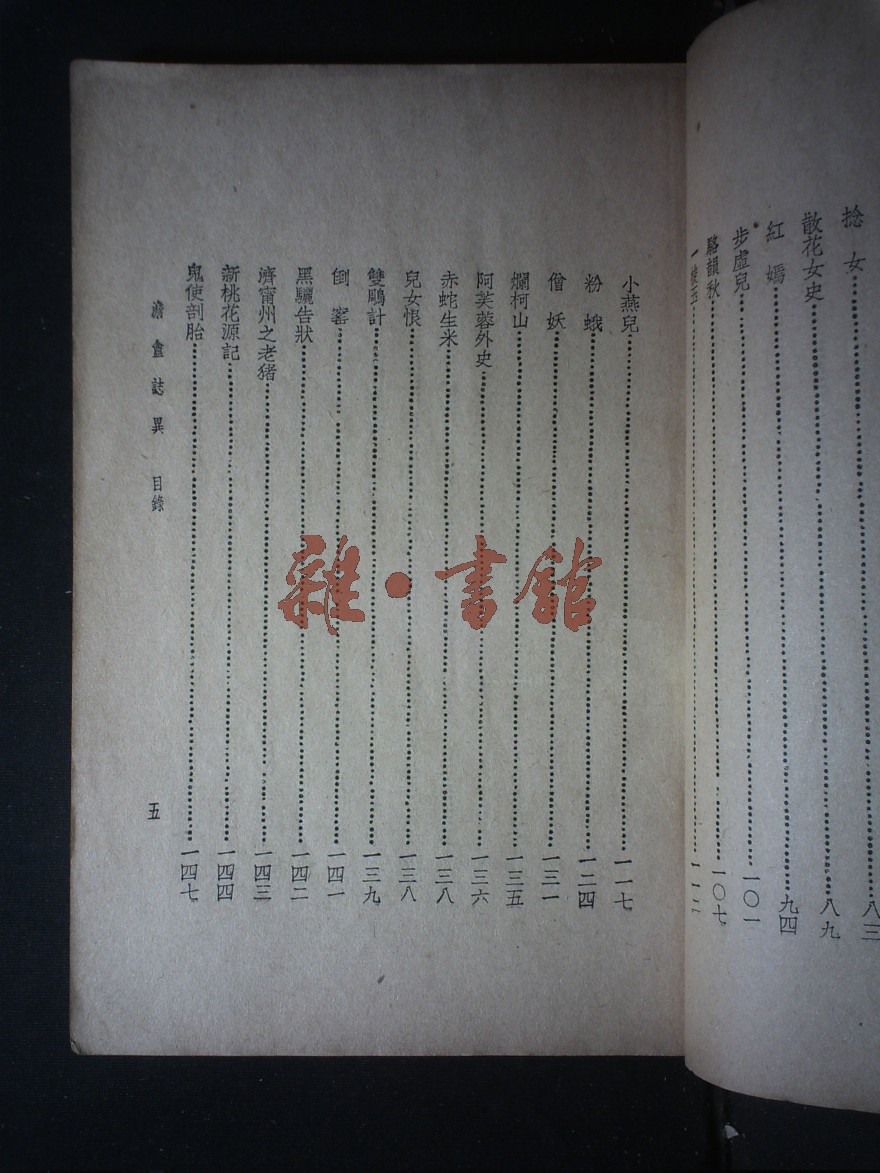 捻女⋯⋯八三
散花女史⋯⋯八九
紅嫣⋯⋯九四
步虛兒⋯⋯一〇一
駱韻秋⋯⋯一〇七
⋯⋯一一二
小燕兒⋯⋯一一七
粉蛾⋯⋯一二四
僧妖⋯⋯一三一
爛柯山⋯⋯一三五
阿芙蓉外史⋯⋯一三六
赤蛇生米⋯⋯一三八
兒女恨⋯⋯一三八
雙鵰計⋯⋯一三九
倒⋯⋯一四一
黑驢告狀⋯⋯一四二
濟甯州之老猪⋯⋯一四三
新桃花源記⋯⋯一四四
鬼使剖胎⋯⋯一四七
澹盦誌異 目錄
五
雜·書館